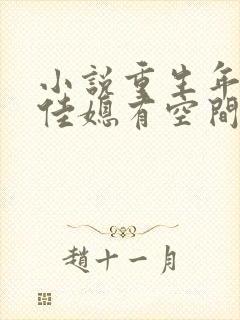 小說重生年
佳媳有空間
趙十一月